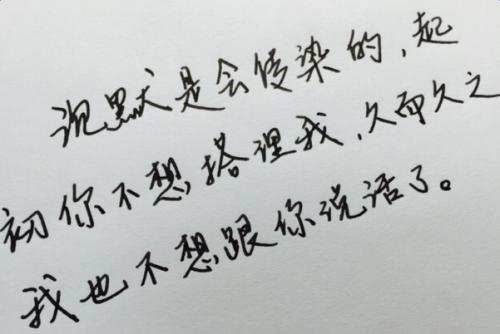 沉默是会传染的,起
初你不想搭理我,久而久之
我也不想跟你说话了。